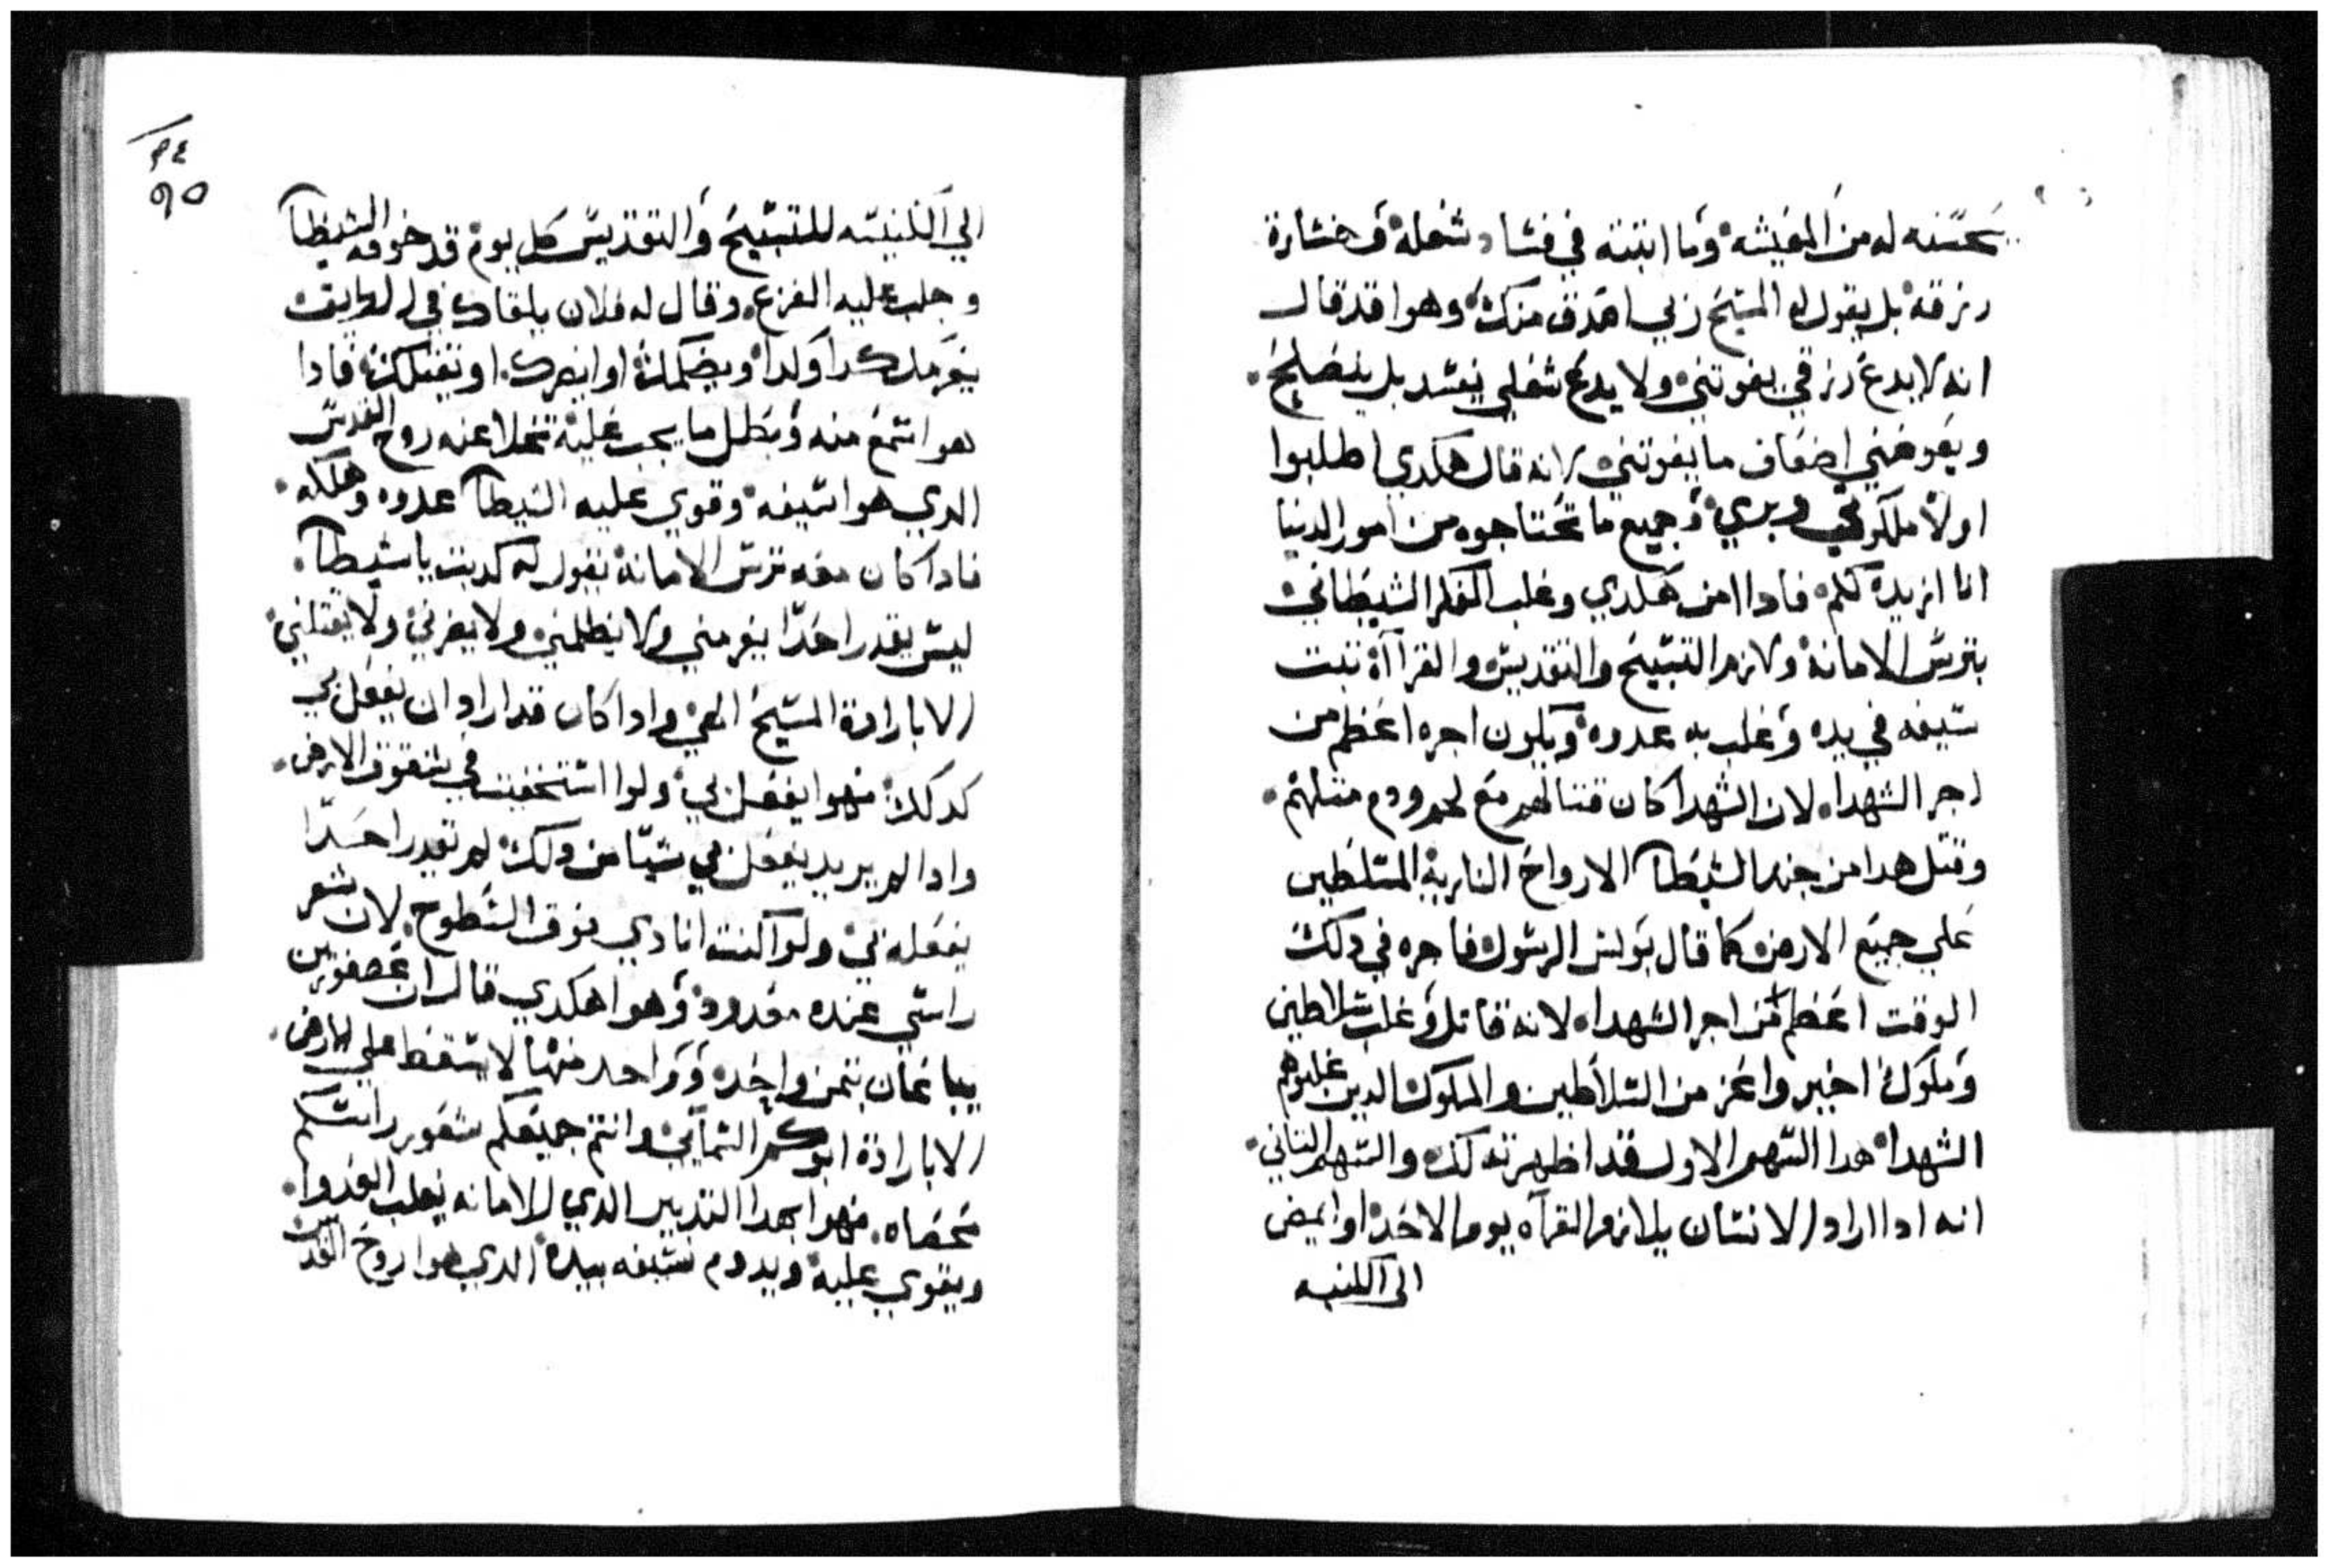 يحسنه له من المعيشه وما انتبته في فساد شغله وخسارة
رزقه بل يقول له المسيح ربي اصدق منك وهوا قد قال
انه لا يدع رزقي يفوتني ولا يدع شغلي يفسد بل ينصلح
ويعوضني اضعاف ما يفوتني لانه قال هكدي اطلبوا
اولا ملكوتي وبري وجميع ما تحتاجوه من امور الدنيا
انا ازيده لكم فادا امن هكدي وغلب الفكر الشيطاني
بترس الامانة ولازم التسبيح والتقديس والقرااة تبت
سيفه في يده وغلب به عدوه ويكون اجره اعظم من
اجر الشهدا لان الشهدا كان قتالهم مع لحم ودم متلهم
وقتل هدا من جند الشيطان الارواح النارية المتسلطين
علي جميع الارض كما قال بولس الرسول فاجره في دلك
الوقت اعظم من اجر الشهدا لانه قاتل وغلب سلاطين
وملوك اخير واعز من السلاطين والملوك الدين غلبوهم
الشهدا هدا السهم الاول قد اظهرته لك والسهم التاني
انه ادا اراد الانسان يلازم القرآه يوم الاحد او يمضي
الى الكنيسه
٩٤
٩٥
الي الكنيسه للتسبيح والتقديس كل يوم قد خوفه الشيطان
وجلب عليه الفزع وقال له فلان يلقاك في الطريق
يغرمك كدا وكدا ويضلمك او يضرك او يقتلك فادا
هوا سمع منه وبطل ما يجب عليه تخلا عنه روح القدس
الدي هوا سيفه وقوي عليه الشيطان عدوه وهلكه
فادا كان معه ترس الامانة يقول له كدبت يا شيطان
ليس يقدر احدا يغرمني ولا يظلمني ولا يضرني ولا يقتلني
الا بارادة المسيح الهي وادا كان قد اراد ان يفعل بي
كدلك فهوا يفعل بي ولوا استخفيت في شقوق الارض
وادا لم يريد يفعل بي شيا من دلك لم يقدر احدا
يفعله بي ولوا كنت انادي فوق السطوح لان شعر
راسي عنده معدود وهوا هكدي قال ان عصفورين
يباعان بتمن واحد وواحد منها لا يسقط علي الارض
الا بارادة ابوكم السمآيي وانتم جميعكم شعور راسكم
محصاه فهوا بهدا التدبير الدي للامانه يغلب العدوا
ويقوي عليه ويدوم سيفه بيده الدي هوا روح القدس